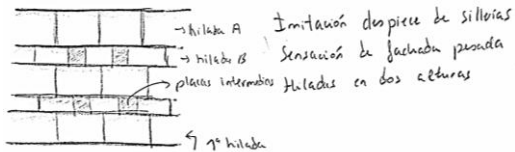 hilada A
hilada B
placas intermedias
1ª hilada
Imitación despiece de sillerías
Sensación de fachada pesada
Hiladas en dos alturas